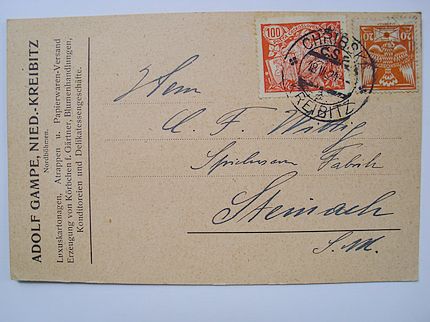 ADOLF GAMPE, NIED.-KREIBITZ
Nordböhmen.
Luxuskartonagen, Atrappen u. Papierwaren-Versand
Erzeugung von Körbchen f. Gärtner, Blumenhandlungen,
Konditoreien und Delikatessengeschäfte.
100
20
CHŘIBSKÁ
KREIBITZ
Herrn
C. F. Wittig
Spielwaren Fabrik
Steinach
S. M.